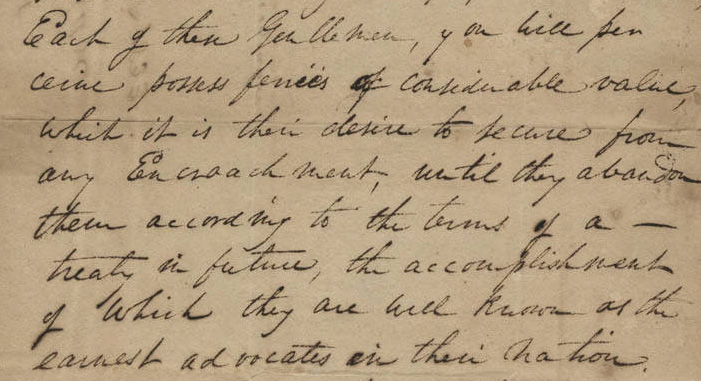 Each of these Gentlemen, you will per
ceive possess ferries of considerable value,
which it is their desire to secure from
any Encroachment, until they abandon
them according to the terms of a —
treaty in future, the accomplishment
of which they are well known as the
earnest advocates in their Nation.